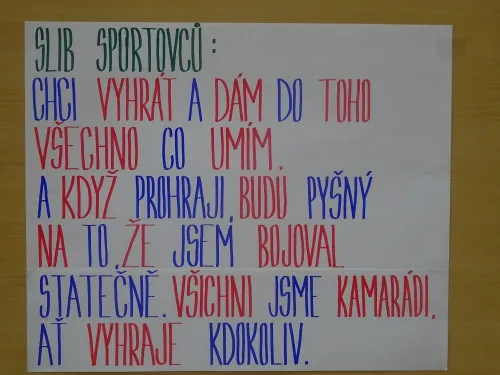 SLIB SPORTOVCŮ:
CHCI VYHRÁT A DÁM DO TOHO
VŠECHNO CO UMÍM.
A KDYŽ PROHRAJI, BUDU PYŠNÝ
NA TO, ŽE JSEM BOJOVAL
STATEČNĚ. VŠICHNI JSME KAMARÁDI,
AŤ VYHRAJE KDOKOLIV.